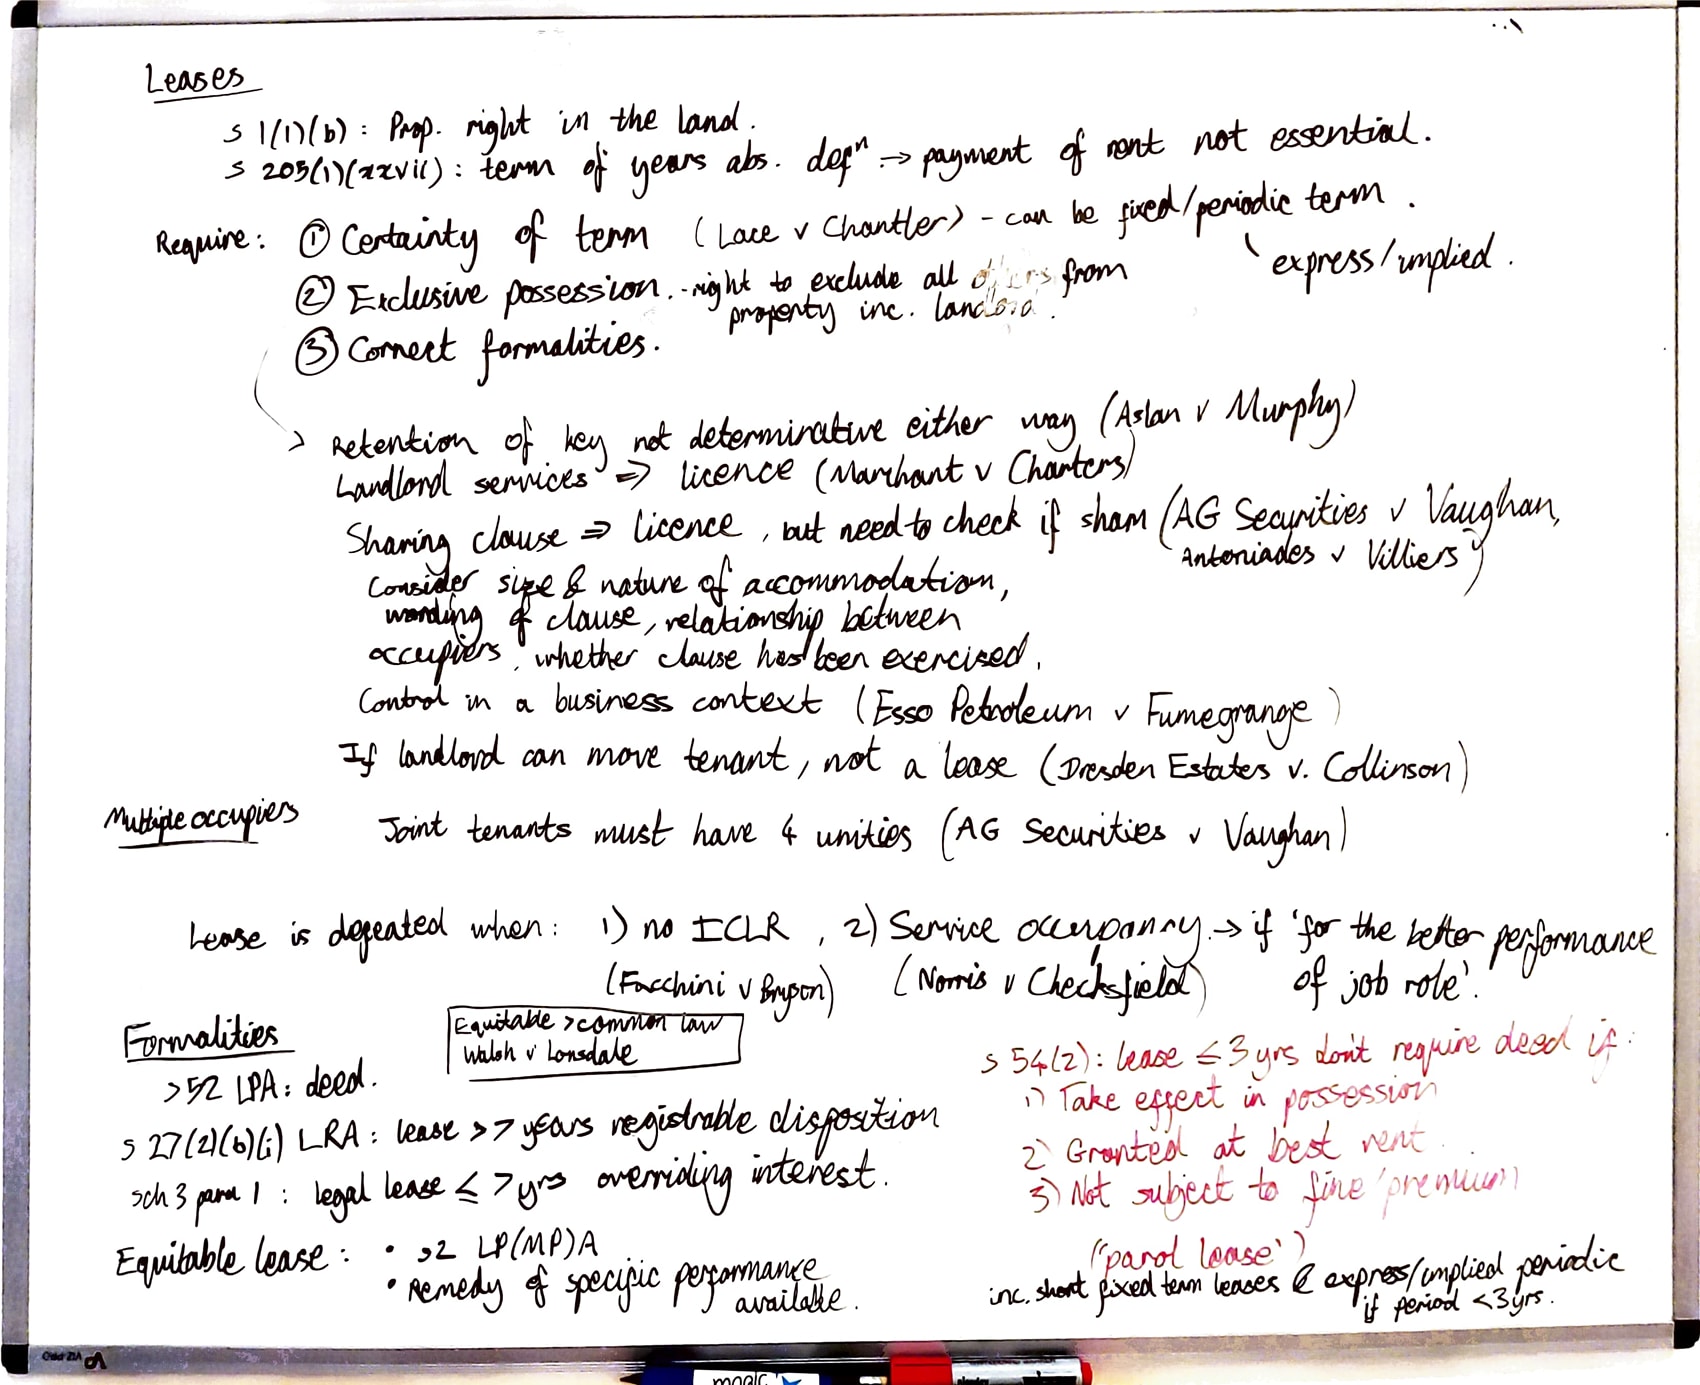 Leases
s 1(1)(b) : Prop. right in the land.
s 205(1)(xxvii) : term of years abs. defⁿ → payment of rent not essential.
Require : ① Certainty of term (Lace v Chantler) - can be fixed/periodic term.
express/implied.
② Exclusive possession. - right to exclude all others from
property inc. landlord.
③ Correct formalities.
> Retention of key not determinative either way (Aslan v Murphy)
Landlord services => licence (Marchant v Charters)
Sharing clause => licence, but need to check if sham (AG Securities v Vaughan,
Antoniades v Villiers)
Consider size & nature of accommodation,
wording of clause, relationship between
occupiers, whether clause has been exercised.
Control in a business context (Esso Petroleum v Fumegrange)
If landlord can move tenant, not a lease (Dresden Estates v. Collinson)
Multiple occupiers
Joint tenants must have 4 unities (AG Securities v Vaughan)
Lease is defeated when: 1) no ICLR, 2) Service occupancy. → if 'for the better performance
of job role'.
(Facchini v Bryson) (Norris v Checksfield)
Formalities
Equitable > common law
Walsh v Lonsdale
s52 LPA: deed.
s 27(2)(b)(i) LRA : lease >7 years registrable disposition
sch 3 para 1 : legal lease ≤ 7 yrs overriding interest.
Equitable lease : • s2 LP(MP)A
• Remedy of specific performance
available.
s 54(2): lease ≤ 3 yrs don't require deed if:
1) Take effect in possession
2) Granted at best rent
3) Not subject to fine/premium
('parol lease')
inc. short fixed term leases & express/implied periodic
if period <3yrs.
magic